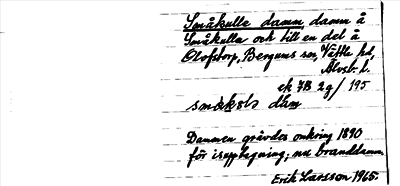 Småkulle damm, damm å
Småkulla och till en del å
Olofstorp, Bergums sn, Vättle hd,
Älvsb. l.
ek 7B 2g/195
dam
Dammen grävdes omkring 1890
för isupptagning; nu branddamm.
Erik Larsson 1965.